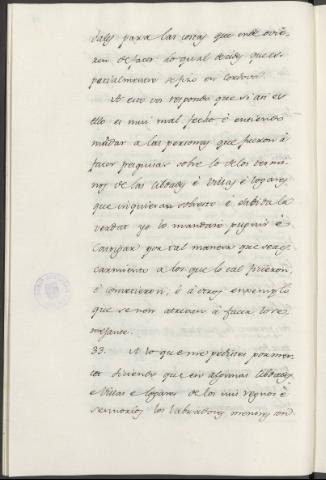 dales para las cosas que ende ovie-
ren de facer lo qual decides que es-
pecialmente se fizo en Cordova.
A esto vos respondo que si asi es
ello es mui mal fecho é entiendo
mandar a las personas que fueron á
facer pesquisas sobre lo de los termi-
nos de las cibdades é villas é logares
que inquieran sobresto é sabida la
verdat yo lo mandaré pugnir é
castigar por tal manera que sea es-
carmiento a los que lo tal ficieron,
é cometieron, é á otros enxemplo
que se non atrevan á facer lo se-
mejante.
33. A lo que me pedistes por mer-
cet diciendo que en algunas cibdades
e villas e logares de los mis regnos é
sennorios los labradores menores